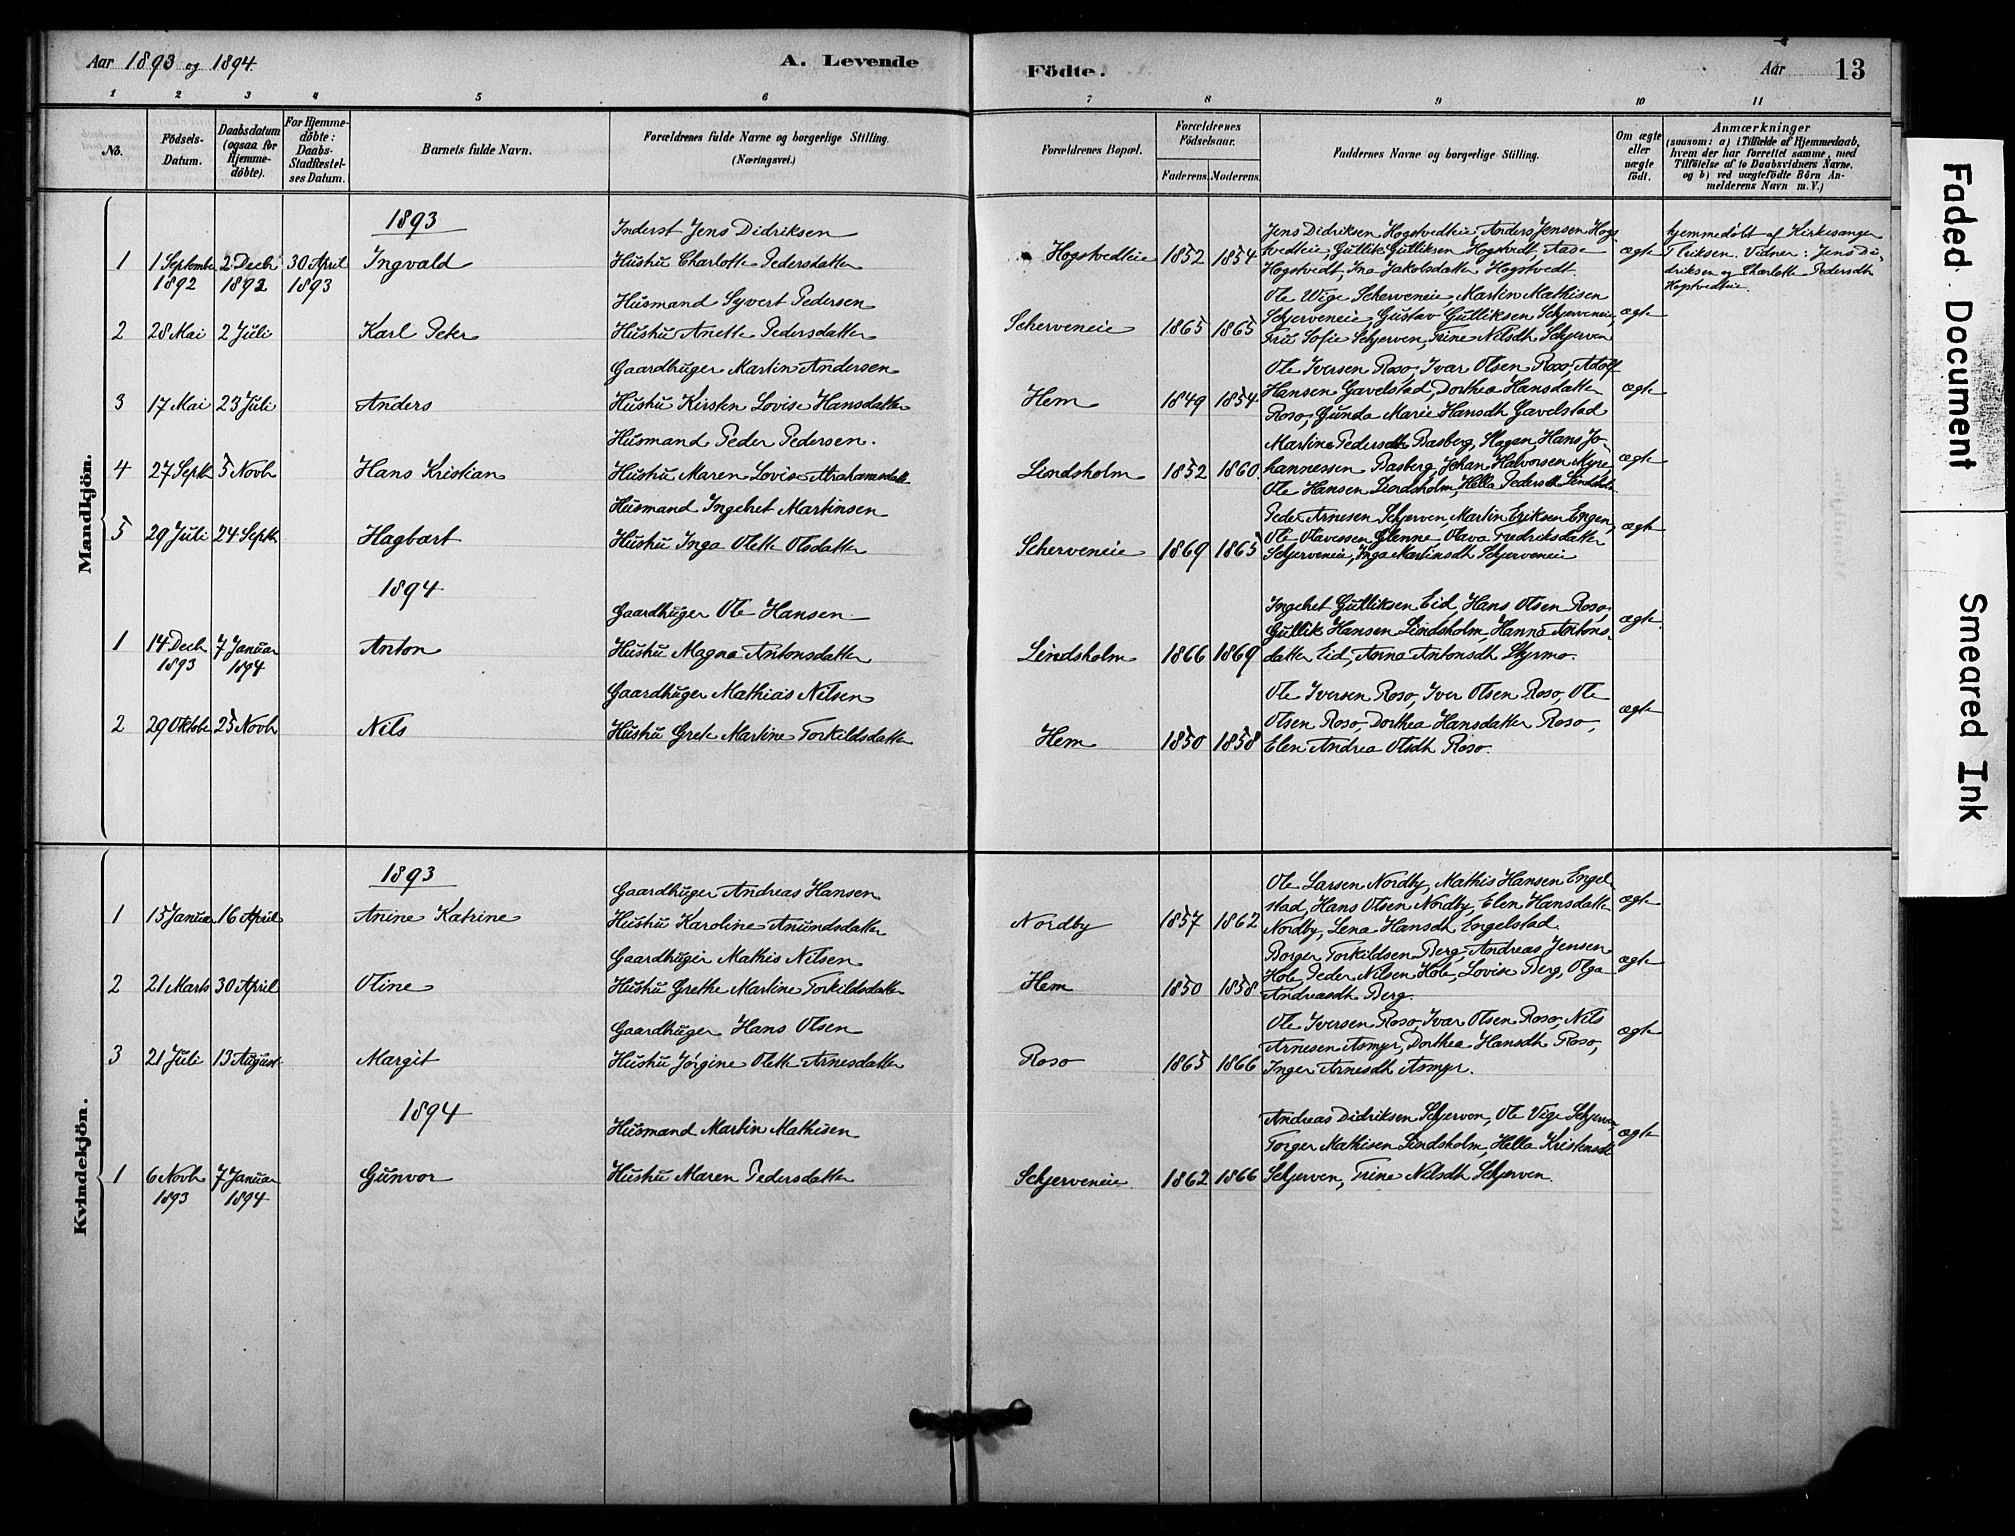 Aar 1893 og 1894.
A. Levende
Födte.
Aar
13
1
2
3
4
5
6
7
8
9
10
11
No.
Födsels-Datum.
Daabsdatum (ogsaa for Hjemme-döbte).
For Hjemme-döbte: Daabs-Stadfæstel-ses Datum.
Barnets fulde Navn.
Forældrenes fulde Navne og borgerlige Stilling. (Næringsvei.)
Forældrenes Bopæl.
Forældrenes Födselsaar.
Faderens.
Moderens.
Faddernes Navne og borgerlige Stilling.
Om ægte eller uægte födt.
Anmærkninger
(saasom: a) i Tilfælde af Hjemmedaab,
hvem der har forrettet samme, med
Tilföielse af to Daabsvidners Navne,
og b) ved uægtefödte Börn An-
melderens Navn m. V.)
Mandkjön.
1893
Inderst Jens Didriksen
Jens Didriksen Hogstvedteie, Anders Jensen Hogst
hjemmedøbt af Kirkesanger
1 1 Septembr 2 Decbr 30 April Ingvald Hustru Charlotte Pedersdatter Hogstvedteie 1852 1854 vedteie, Gullik Gulliksen Hogstvedt, Aase ægte
1892 1892 1893 Hogstvedt, Ina Jakobsdatter Hogstvedt.
Vidner: Jens Di-
driksen og Charlotte Pedersdtr
Hogstvedteie.
Husmand Syvert Pedersen
Ole Vige Scherveneie, Martin Mathisen
2 28 Mai 2 Juli Karl Peter Hustru Anette Pedersdatter Scherveneie 1865 1865 Schjerveneie, Gustav Gulliksen Schjerveneie, ægte
Fru Sofie Schjerven, Trine Nilsdtr Schjerven
Gaardbruger Martin Andersen
Ole Iversen Roso, Ivar Olsen Roso, Adolf
3 17 Mai 23 Juli Anders Hustru Kirsten Lovise Hansdatter Hem 1849 1854 Hansen Gavelstad, Dorthea Hansdatter ægte
Roso, Gunda Marie Hansdtr Gavelstad
Husmand Peder Pedersen.
Martine Pedersdtr Basberg, Slagen, Hans Jo-
4 27 Septbr 5 Novbr Hans Kristian Hustru Maren Lovise Abrahamsdatter Lindsholm 1852 1860 hannessen Basberg, Johan Halvorsen Myre, ægte
Ole Hansen Lindsholm, Hella Pedersdtr Lindsholm
Husmand Ingebret Martinsen
Peder Arnesen Schjerven, Martin Eriksen Engen,
5 29 Juli 24 Septbr Hagbart Hustru Inga Olette Olsdatter Scherveneie 1869 1865 Ole Olavessen Glenne, Olava Fredriksdatter ægte
Schjerveneie, Inga Martinsdtr Schjerveneie
1894
Gaardbruger Ole Hansen
Ingebret Gulliksen Eid, Hans Olsen Roso,
1 14 Decbr 7 Januar Anton Hustru Magna Antonsdatter Lindsholm 1866 1869 Gullik Hansen Lindsholm, Hanna Antons- ægte
1893 1894 datter Eid, Anna Antonsdtr Styrmo.
Gaardbruger Mathias Nilsen
Ole Iversen Roso, Iver Olsen Roso, Ole
2 29 Oktober 25 Novbr Nils Hustru Grete Martine Torkildsdatter Hem 1850 1858 Olsen Roso, Dorthea Hansdatter Roso, ægte
Elen Andrea Olsdtr Roso.
Kvindekjön.
1893
Gaardbruger Andreas Hansen
Ole Larsen Nordby, Mathis Hansen Engel-
1 15 Januar 16 April Anine Katrine Hustru Karoline Anundsdatter Nordby 1857 1862 stad, Hans Olsen Nordby, Elen Hansdatter ægte
Nordby, Lena Hansdtr Engelstad.
Gaardbruger Mathis Nilsen
Borger Torkildsen Berg, Andreas Jensen
2 21 Marts 30 April Oline Hustru Grethe Martine Torkildsdatter Hem 1850 1858 Hole, Peder Nilsen Hole, Lovise Berg, Olga ægte
Andreasdtr Berg.
Gaardbruger Hans Olsen
Ole Iversen Roso, Ivar Olsen Roso, Nils
3 21 Juli 13 August Margit Hustru Jørgine Olette Arnesdatter Roso 1865 1866 Arnesen Asmyr, Dorthea Hansdtr Roso, ægte
Inger Arnesdtr Asmyr.
1894
Husmand Martin Mathisen
Andreas Didriksen Schjerven, Ole Vige Schjerven,
Torger Mathisen Lindsholm, Hella Kristensdtr ægte
1 6 Novbr 7 Januar Gunvor Hustru Maren Pedersdatter Schjerveneie 1862 1866 Schjerven, Trine Nilsdtr Schjerven.
1893 1894
Faded Document
Smeared Ink